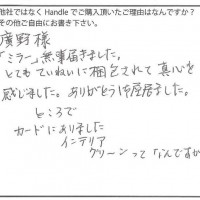 他社ではなく Handle でご購入頂いたご理由はなんですか？
その他ご自由にお書き下さい。
廣野様
「ミラー」無事届きました。
とてもていねいに梱包されて真心を
感じました。ありがとう御座居ました。
ところで
カードにありました
インテリア
グリーンって「なんですか